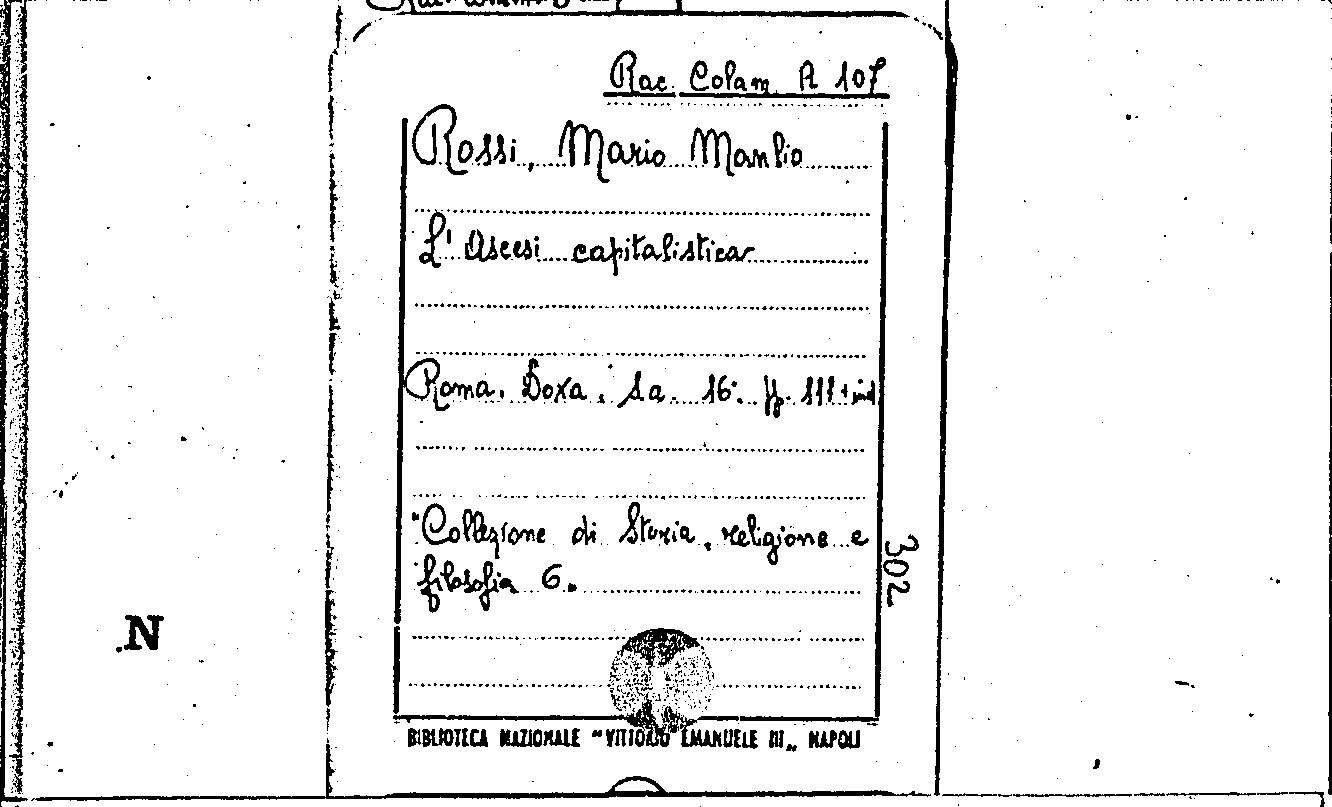 Rac. Colam. A 107
Rossi, Mario Manlio
L'Ascesi capitalistica
Roma. Doxa. s.a. 16°. pp. 111 + ind
"Collezione di Storia, religione e
filosofia 6.
302
.N
BIBLIOTECA NAZIONALE "VITTORIO EMANUELE III„ NAPOLI